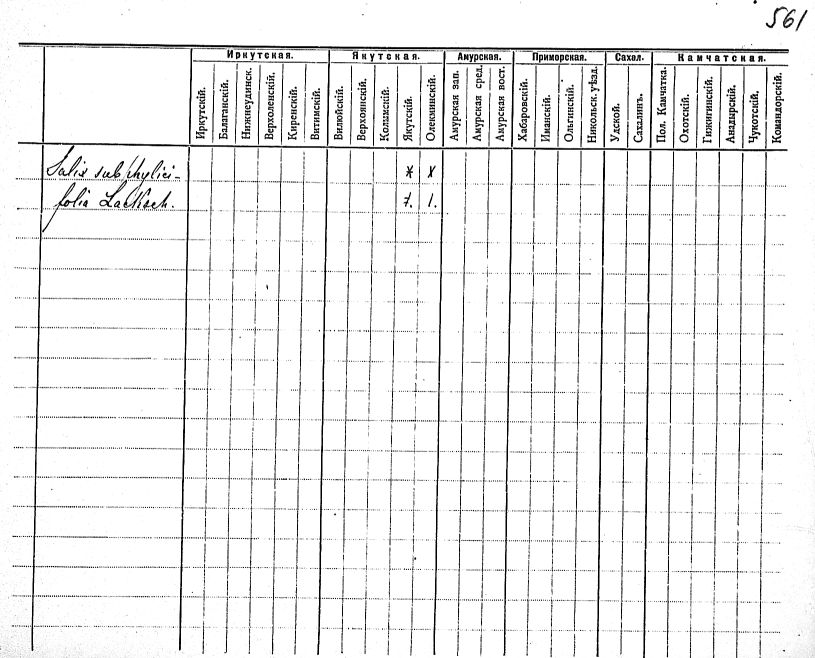 561
Иркутская. Якутская. Амурская. Приморская. Сахал. Камчатская.
Иркутскій. Балаганскій. Нижнеудинск. Верхоленскій. Киренскій. Витимскій. Вилюйскій. Верхоянскій. Колымскій. Якутскій. Олекминскій. Амурская зап. Амурская сред. Амурская вост. Хабаровскій. Иманскій. Ольгинскій. Никольск. уѣзд. Удской. Сахалинъ. Пол. Камчатка. Охотскій. Гижигинскій. Анадырскій. Чукотскій. Командорскій.
Salix subphylici- x x
folia Laksch. 7. 1.